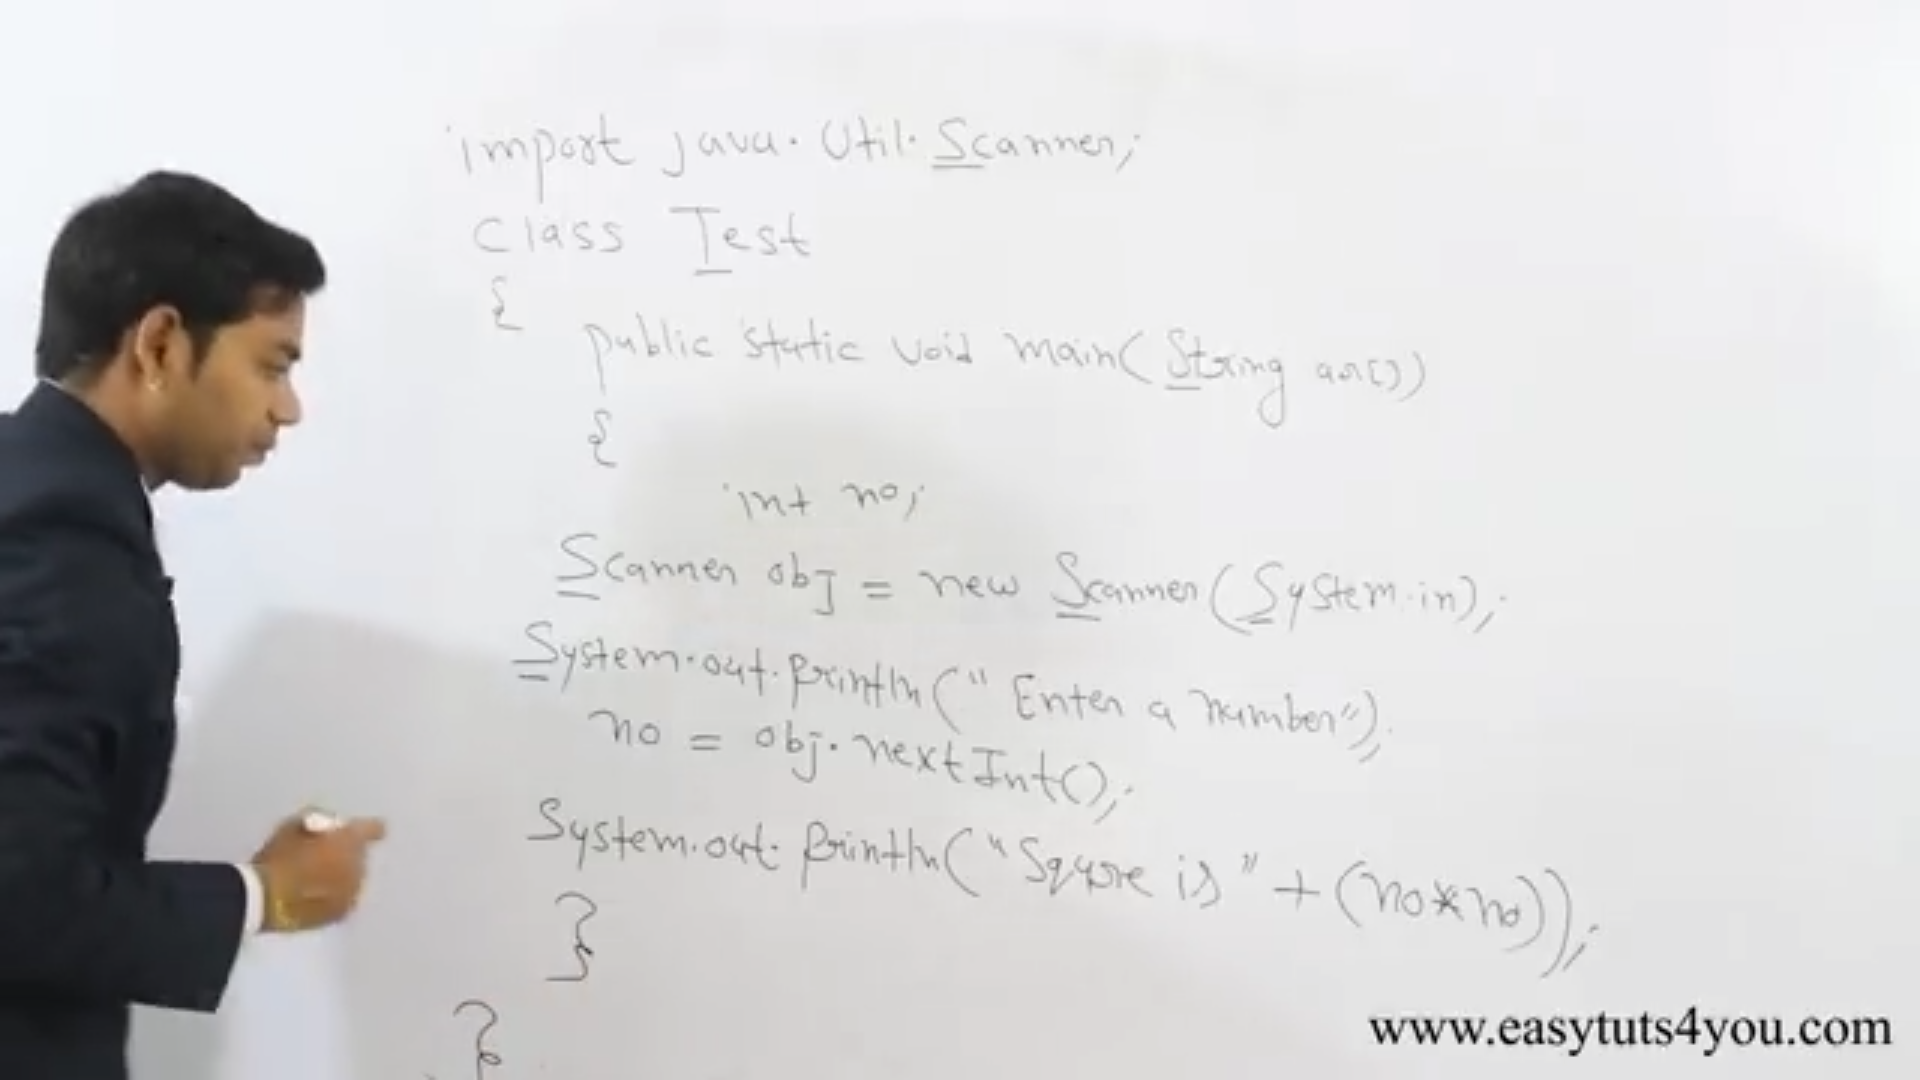 import java.util.Scanner;
class Test
{
public static void main(String ar[])
{
int no;
Scanner obj = new Scanner(System.in);
System.out.println("Enter a number");
no = obj.nextInt();
System.out.println("Square is"+(no*no));
}
}
www.easytuts4you.com